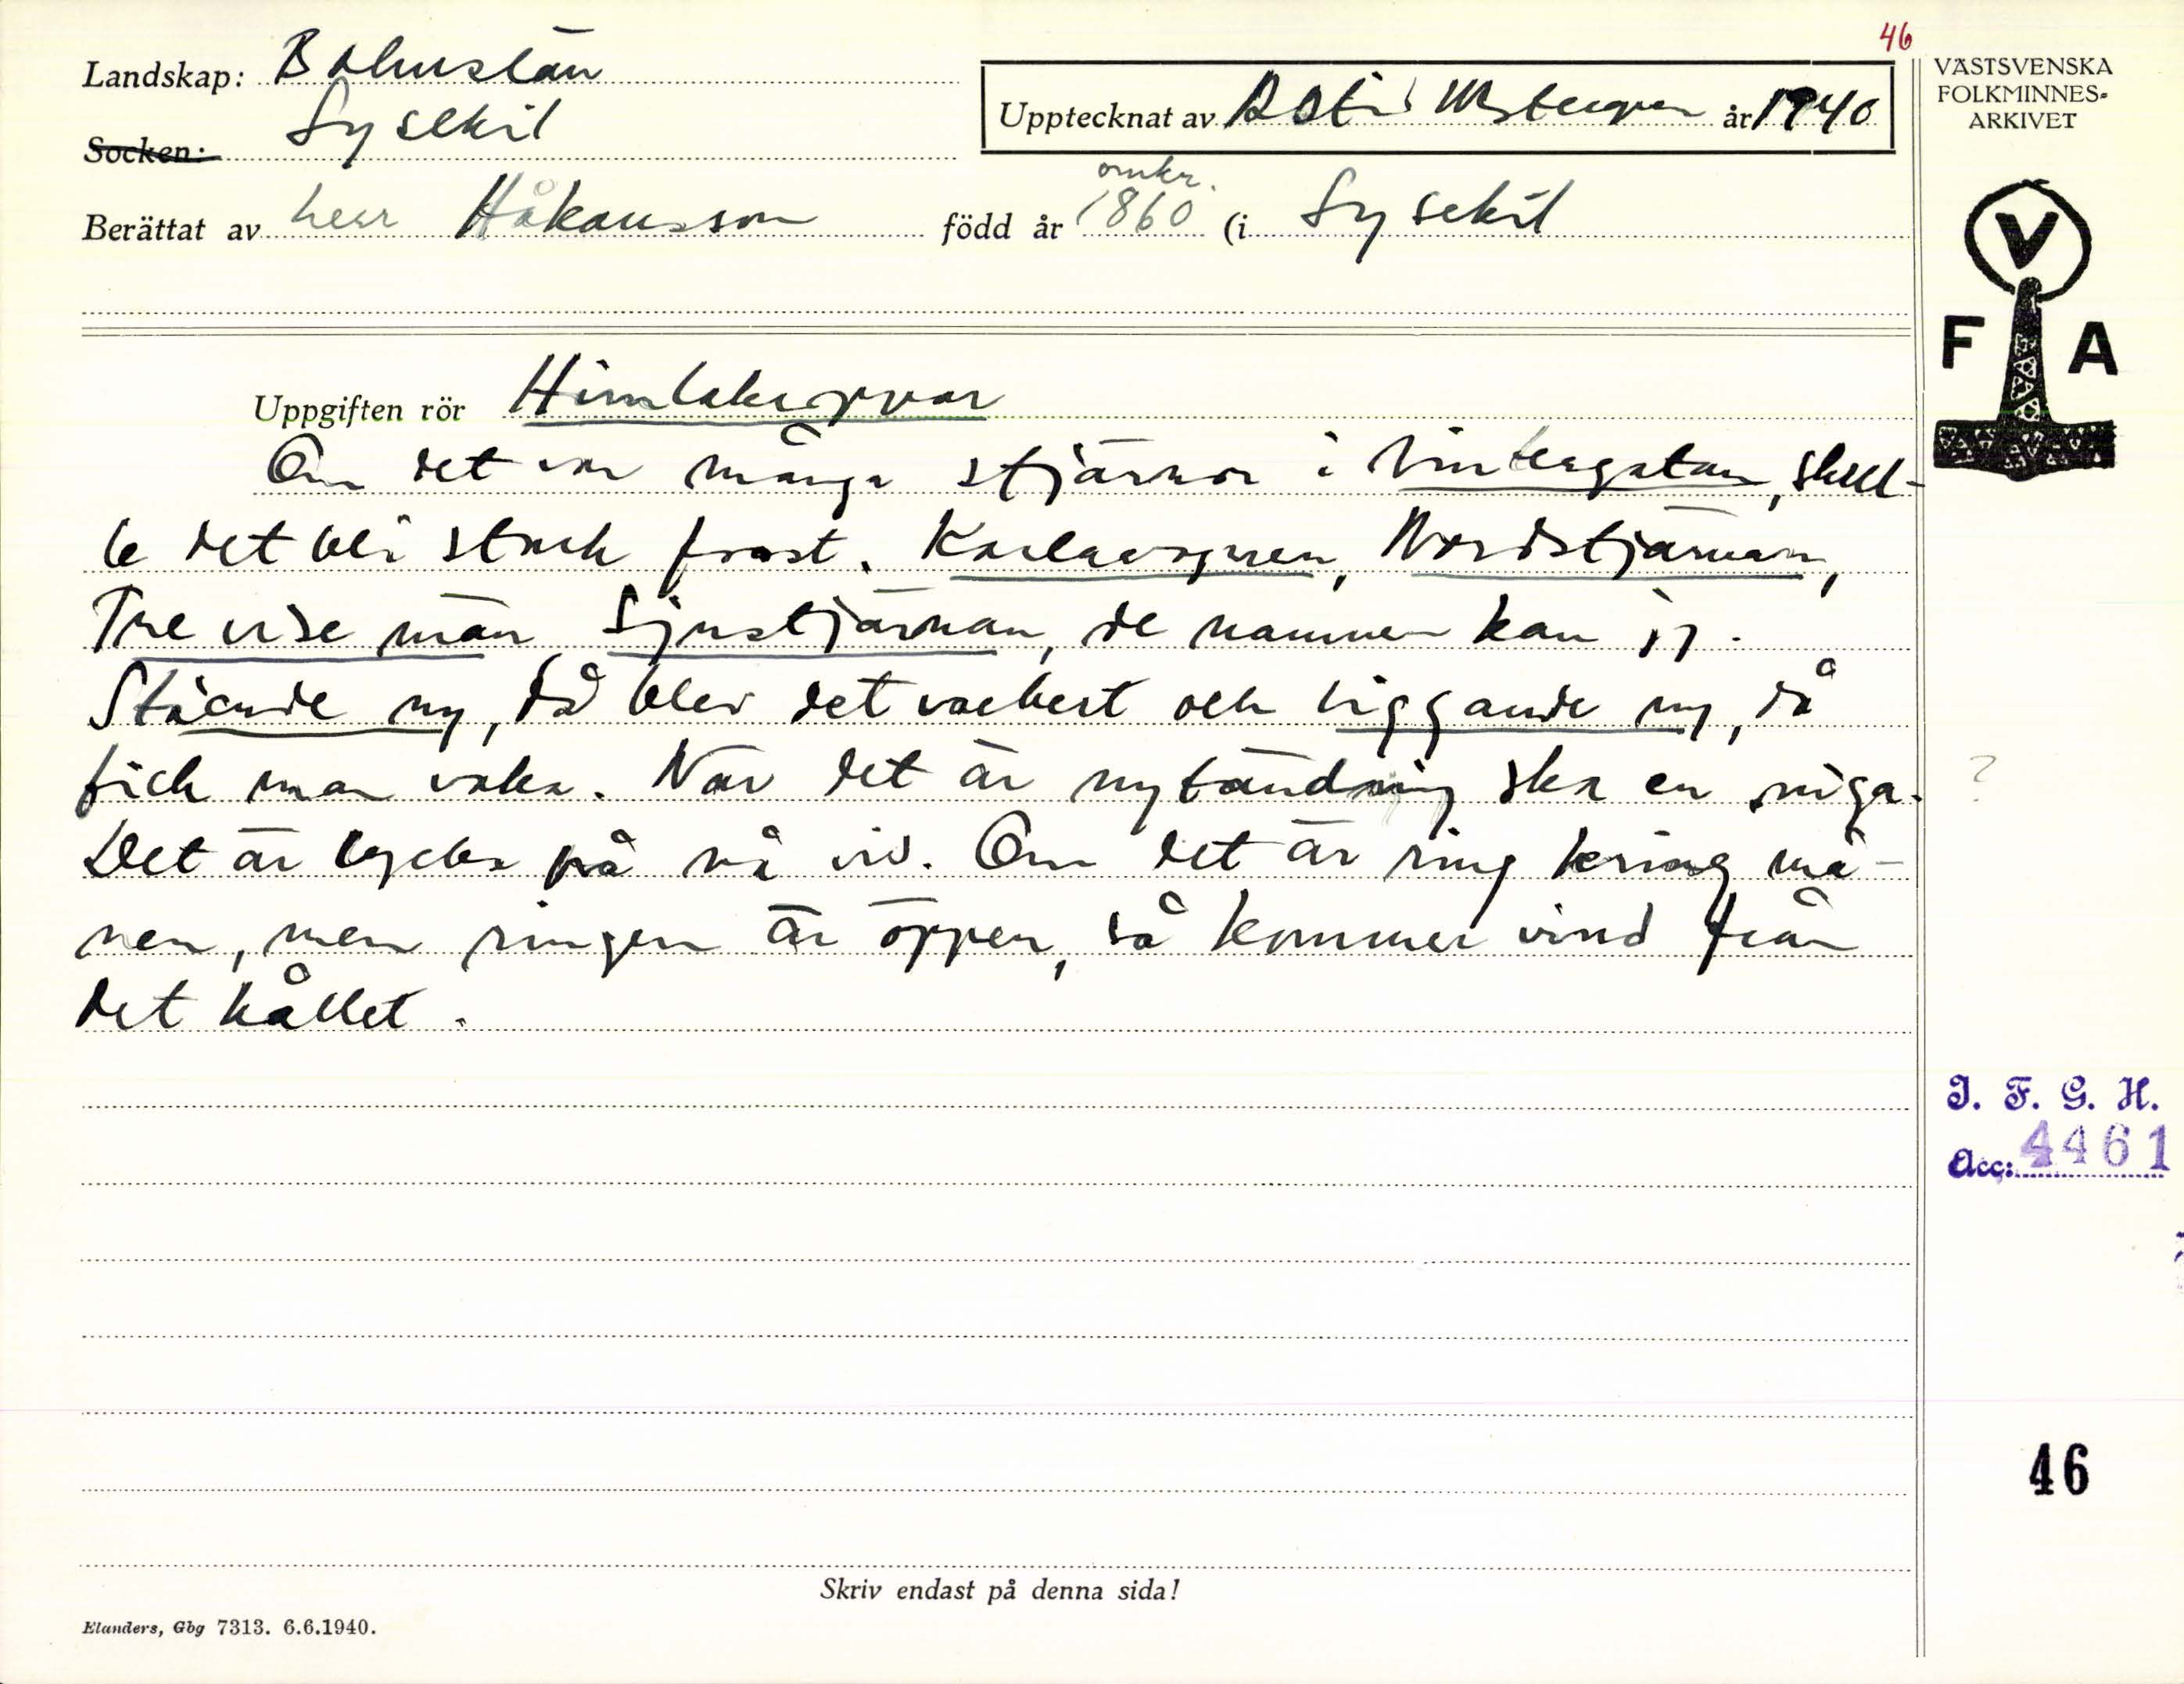 46
Landskap: Bohuslän
Upptecknat av Astrid år 1940
VÄSTSVENSKA
FOLKMINNES-
ARKIVET
Socken: Lysekil
Berättat av herr Håkansson född år omkr. 1860 (i Lysekil
V
F A
Uppgiften rör Himlakroppar
Om det var många stjärnor i Vintergatan, skul-
le det bli stark frost. Karlavagnen, Nordstjärnan,
Tre vise män, Sjustjärnan, de namnen kan jag.
Stående ny, då blev det vackert och liggande ny, då
fick man vaka. När det är nytändning ska en niga. ?
Det är lycka på nå vis. Om det är ring kring må-
nen, men ringen är öppen, så kommer vind från
det hållet.
I. F. G. H.
Acc: 4461
46
Skriv endast på denna sida!
Elanders, Gbg 7313. 6.6.1940.